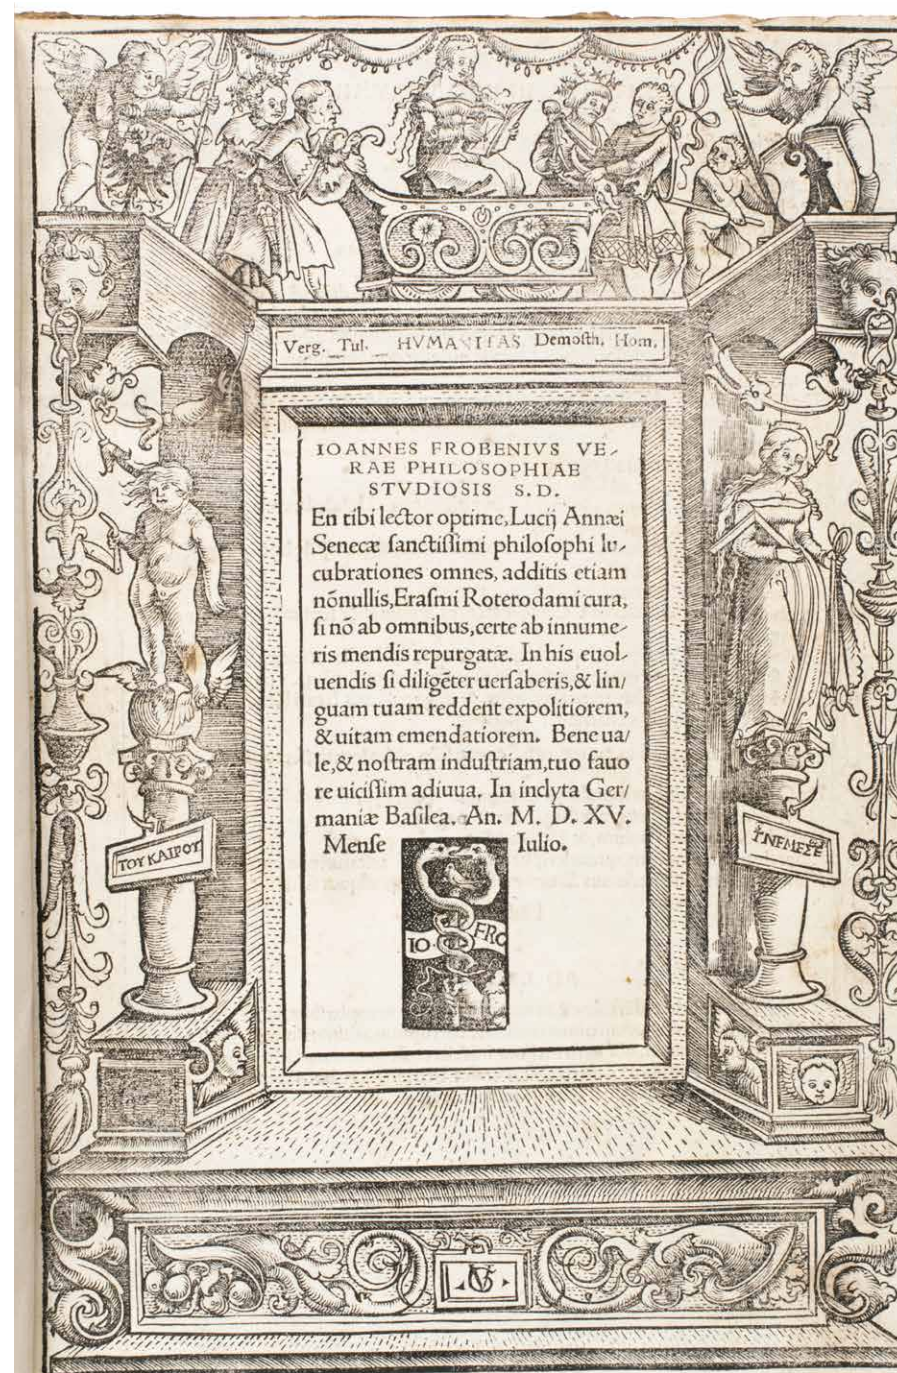 Verg. Tul. HVMANITAS Demoſth. Hom.
IOANNES FROBENIVS VE-
RAE PHILOSOPHIAE
STVDIOSIS S.D.
En tibi lector optime, Lucij Annæi
Senecæ ſanctiſſimi philoſophi lu-
cubrationes omnes, additis etiam
nõnullis, Eraſmi Roterodami cura,
ſi nõ ab omnibus, certe ab innume-
ris mendis repurgatæ. In his euol-
uendis ſi diligẽter uerſaberis, & lin/
guam tuam reddent expolitiorem,
& uitam emendatiorem. Bene ua/
le, & noſtram induſtriam, tuo fauo
re uiciſſim adiuua. In inclyta Ger/
maniæ Baſilea. An. M. D. XV.
Menſe Iulio.
ΤΟΥ ΚΑΙΡΟΥ
IO FRO
VG